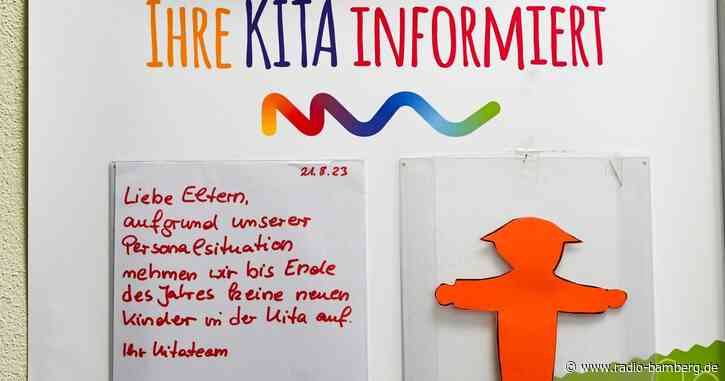 IHRE KITA INFORMIERT
21.8.23
Liebe Eltern,
aufgrund unserer
Personalsituation
nehmen wir bis Ende
des Jahres keine neuen
Kinder in der Kita auf.
Ihr Kitateam
© www.radio-bamberg.de